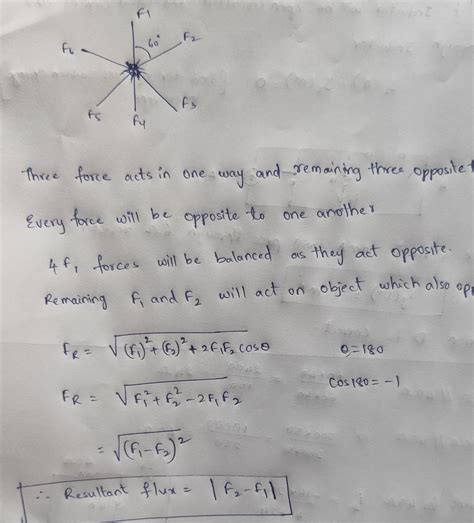 F1
60°
F2
F6
F3
F5
F4
Three force acts in one way and remaining three opposite
Every force will be opposite to one another
4 f1 forces will be balanced as they act opposite.
Remaining F1 and F2 will act on object which also opp
FR = √(F1)²+(F2)²+2F1F2 cosθ θ=180
FR = √F1²+F2²-2F1F2 cos180=-1
= √(F1-F2)²
∴ Resultant flux = |F2-F1|